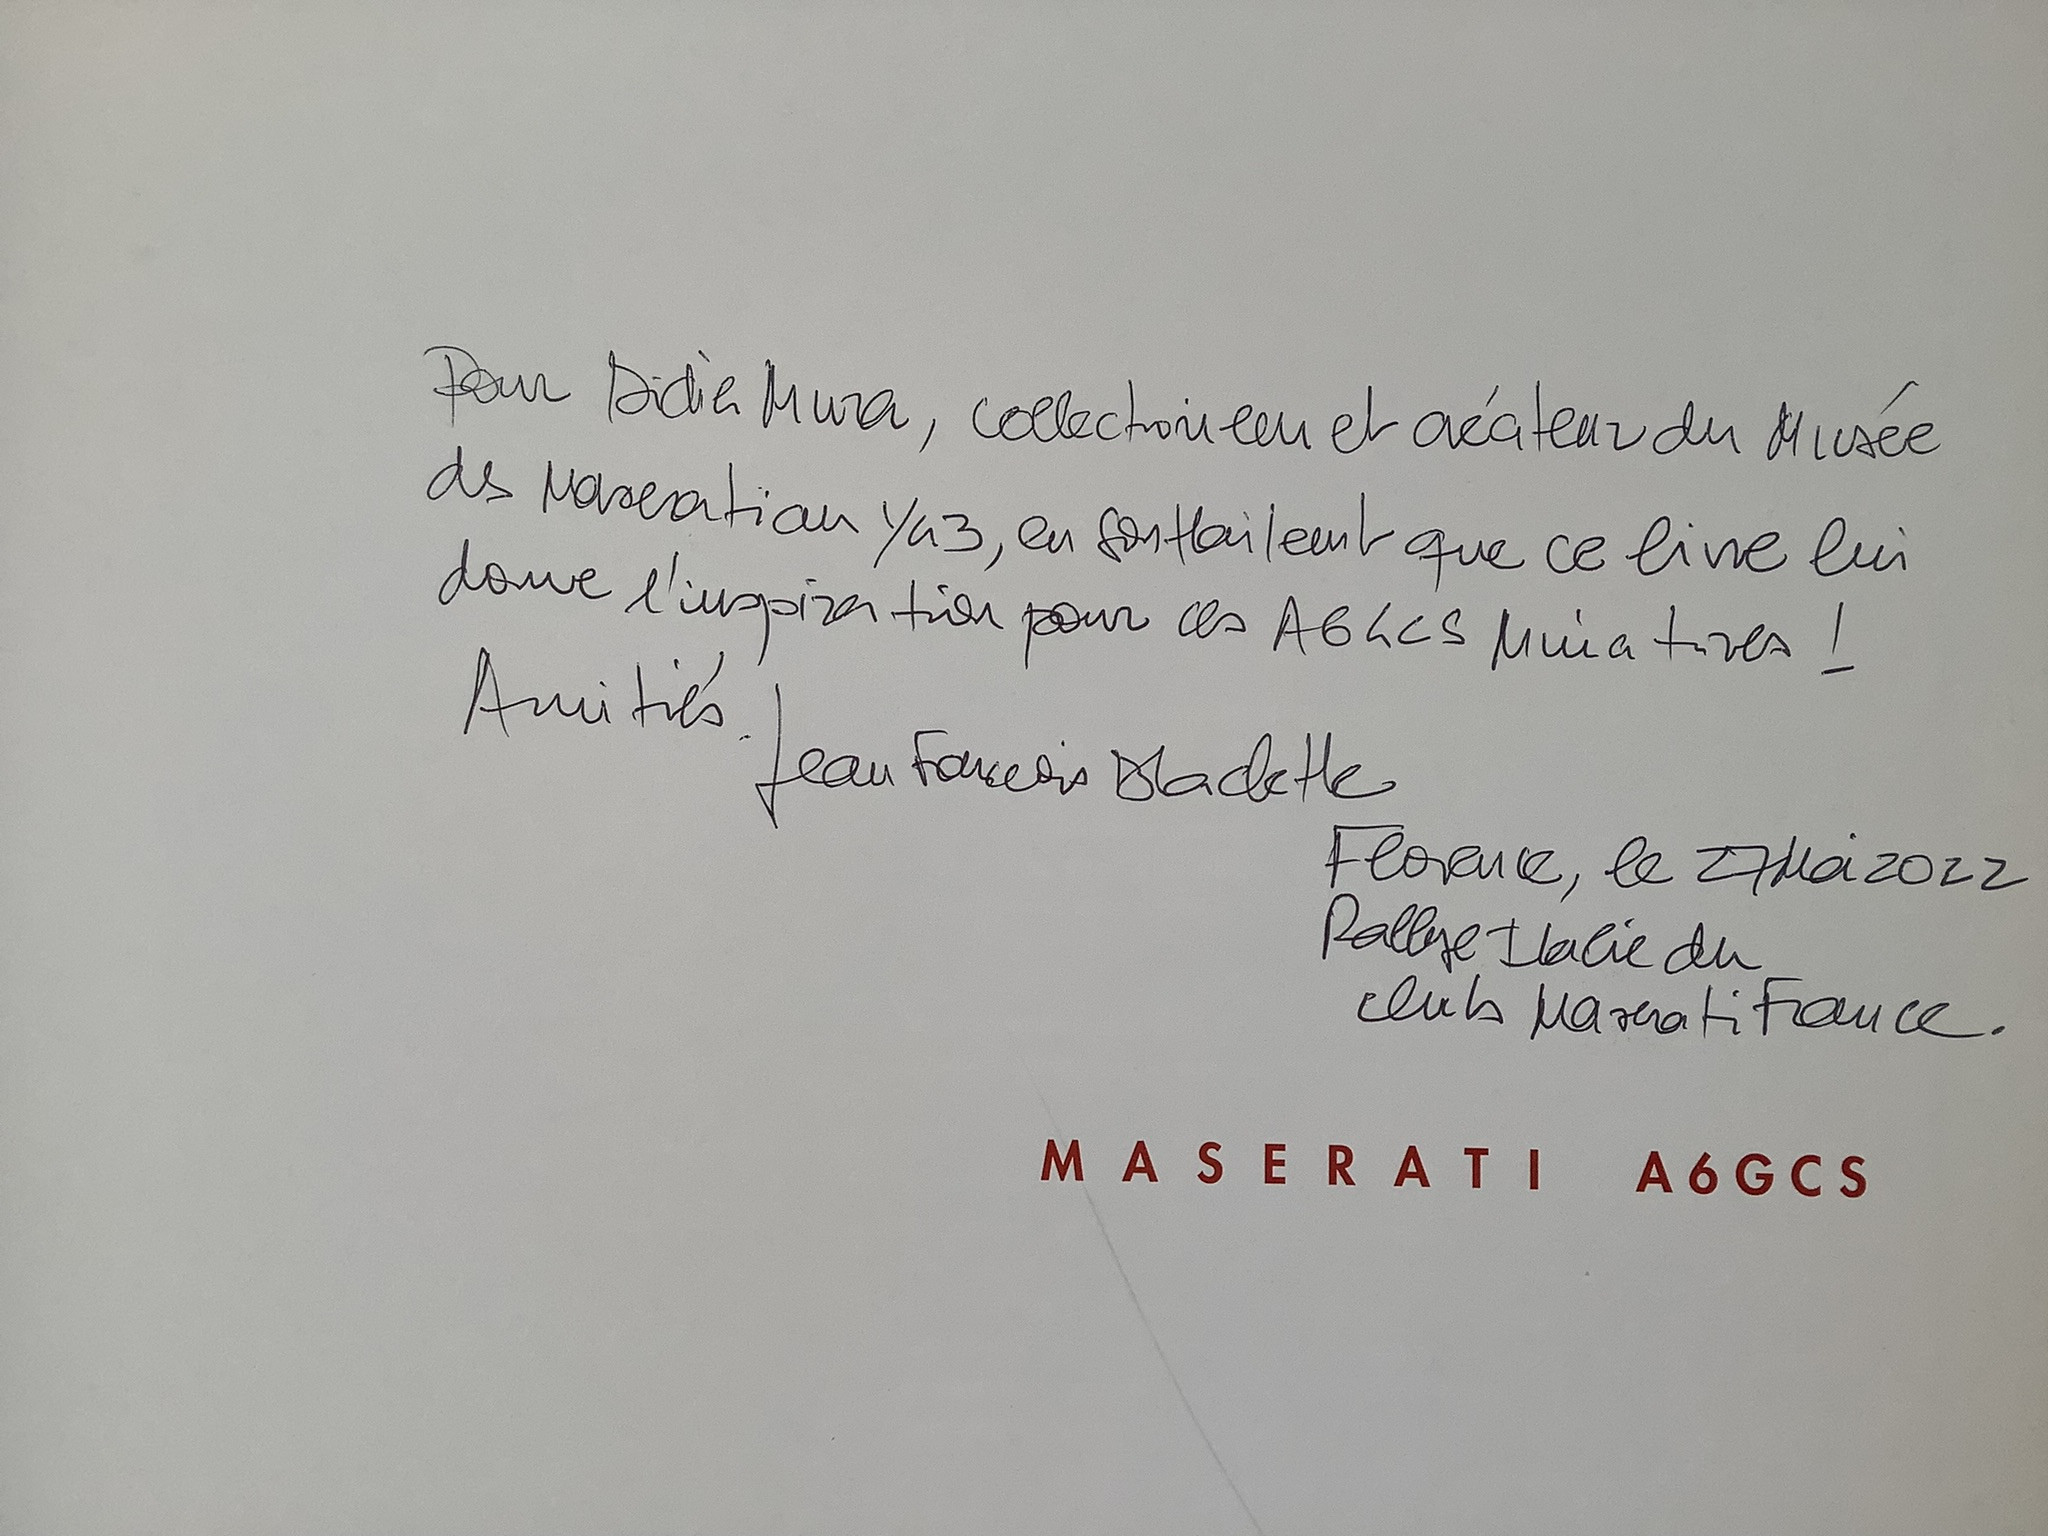 Pour Didier Mura, collectionneur et créateur du Musée
des Maserati au 1/43, en souhaitant que ce livre lui
donne l'inspiration pour ces A6GCS Miniatures !
Amitiés.
Jean François Blachette
Florence, le 27 Mai 2022
Rallye Italie du
club Maserati France.
MASERATI A6GCS